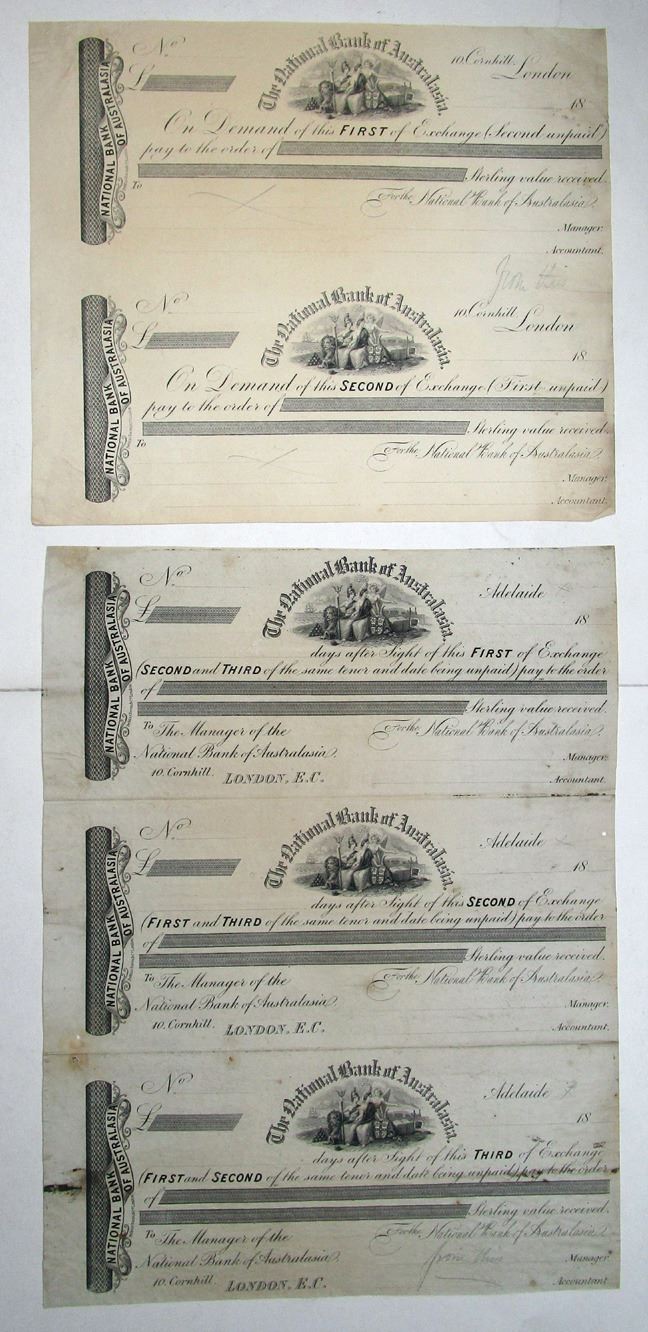 NATIONAL BANK
OF AUSTRALASIA
No
£
The National Bank of Australasia.
10. Cornhill. London
18
On Demand of this FIRST of Exchange (Second unpaid)
pay to the order of
Sterling value received.
To
For the National Bank of Australasia.
Manager.
Accountant.
from this
NATIONAL BANK
OF AUSTRALASIA
No
£
The National Bank of Australasia.
10. Cornhill. London
18
On Demand of this SECOND of Exchange (First unpaid)
pay to the order of
Sterling value received.
To
For the National Bank of Australasia.
Manager.
Accountant.
NATIONAL BANK
OF AUSTRALASIA
No
£
The National Bank of Australasia.
Adelaide
18
days after Sight of this FIRST of Exchange
(SECOND and THIRD of the same tenor and date being unpaid) pay to the order
of
Sterling value received.
To The Manager of the
National Bank of Australasia.
10. Cornhill. LONDON, E.C.
For the National Bank of Australasia.
Manager.
Accountant.
NATIONAL BANK
OF AUSTRALASIA
No
£
The National Bank of Australasia.
Adelaide
18
days after Sight of this SECOND of Exchange
(FIRST and THIRD of the same tenor and date being unpaid) pay to the order
of
Sterling value received.
To The Manager of the
National Bank of Australasia.
10. Cornhill. LONDON, E.C.
For the National Bank of Australasia.
Manager.
Accountant.
NATIONAL BANK
OF AUSTRALASIA
No
£
The National Bank of Australasia.
Adelaide
18
days after Sight of this THIRD of Exchange
(FIRST and SECOND of the same tenor and date being unpaid) pay to the order
of
Sterling value received.
To The Manager of the
National Bank of Australasia.
10. Cornhill. LONDON, E.C.
For the National Bank of Australasia.
from this
Manager.
Accountant.